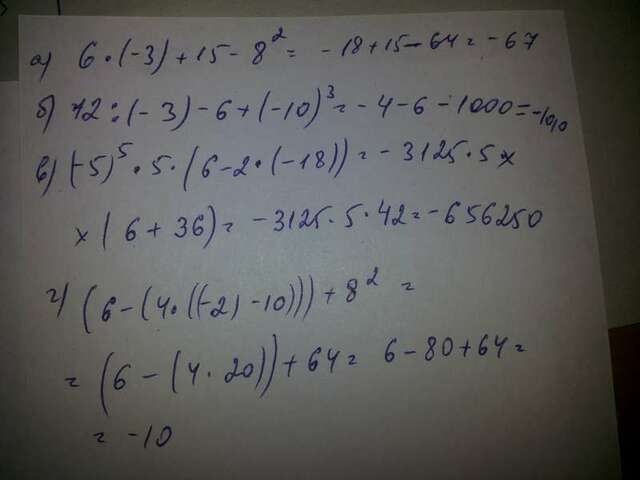 а) 6·(-3)+15-8² = -18+15-64 = -67
б) 12:(-3)-6+(-10)³ = -4-6-1000 = -1010
в) (-5)⁵·5·(6-2·(-18)) = -3125·5×
×(6+36) = -3125·5·42 = -656250
г) (6-(4·((-2)-10)))+8² =
= (6-(4·20))+64 = 6-80+64 =
= -10